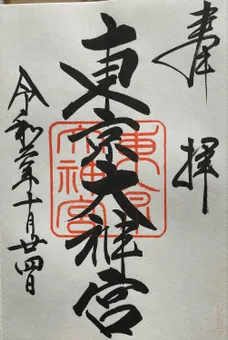 奉拝
東京大神宮
東京大神宮
令和年十月廿四日